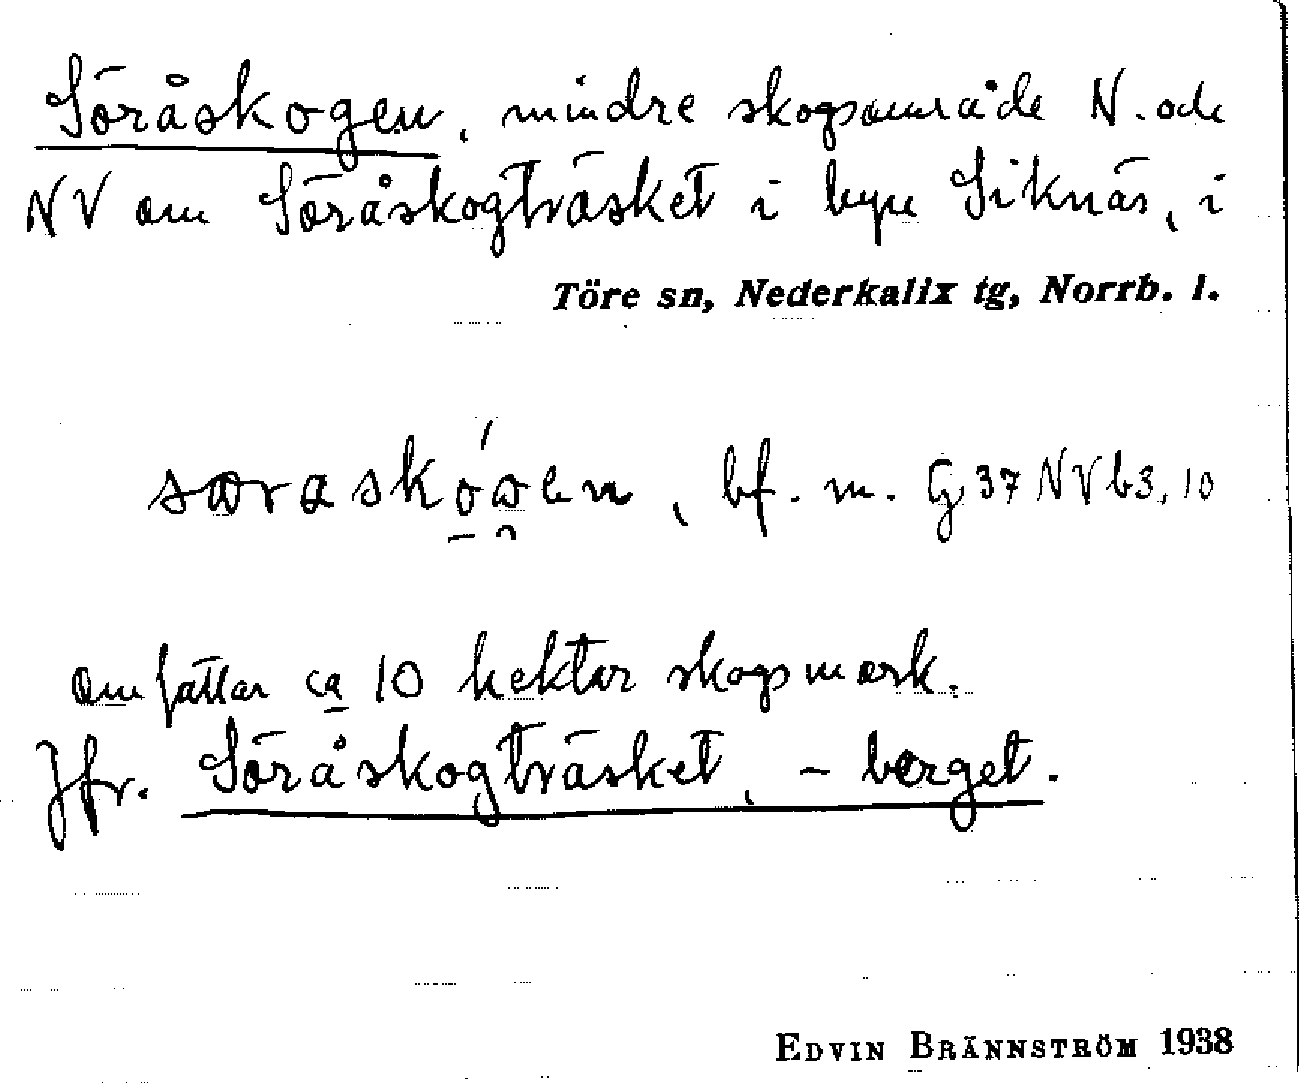 Söråskogen, mindre skogsområde N. och
NV om Söråskogträsket i byn Siknäs, i
Töre sn, Nederkalix tg, Norrb. l.
bf. m. G 37 NV b3, 10
omfattar ca 10 hektar skogsmark.
Jfr. Söråskogträsket, - berget.
EDVIN BRÄNNSTRÖM 1938